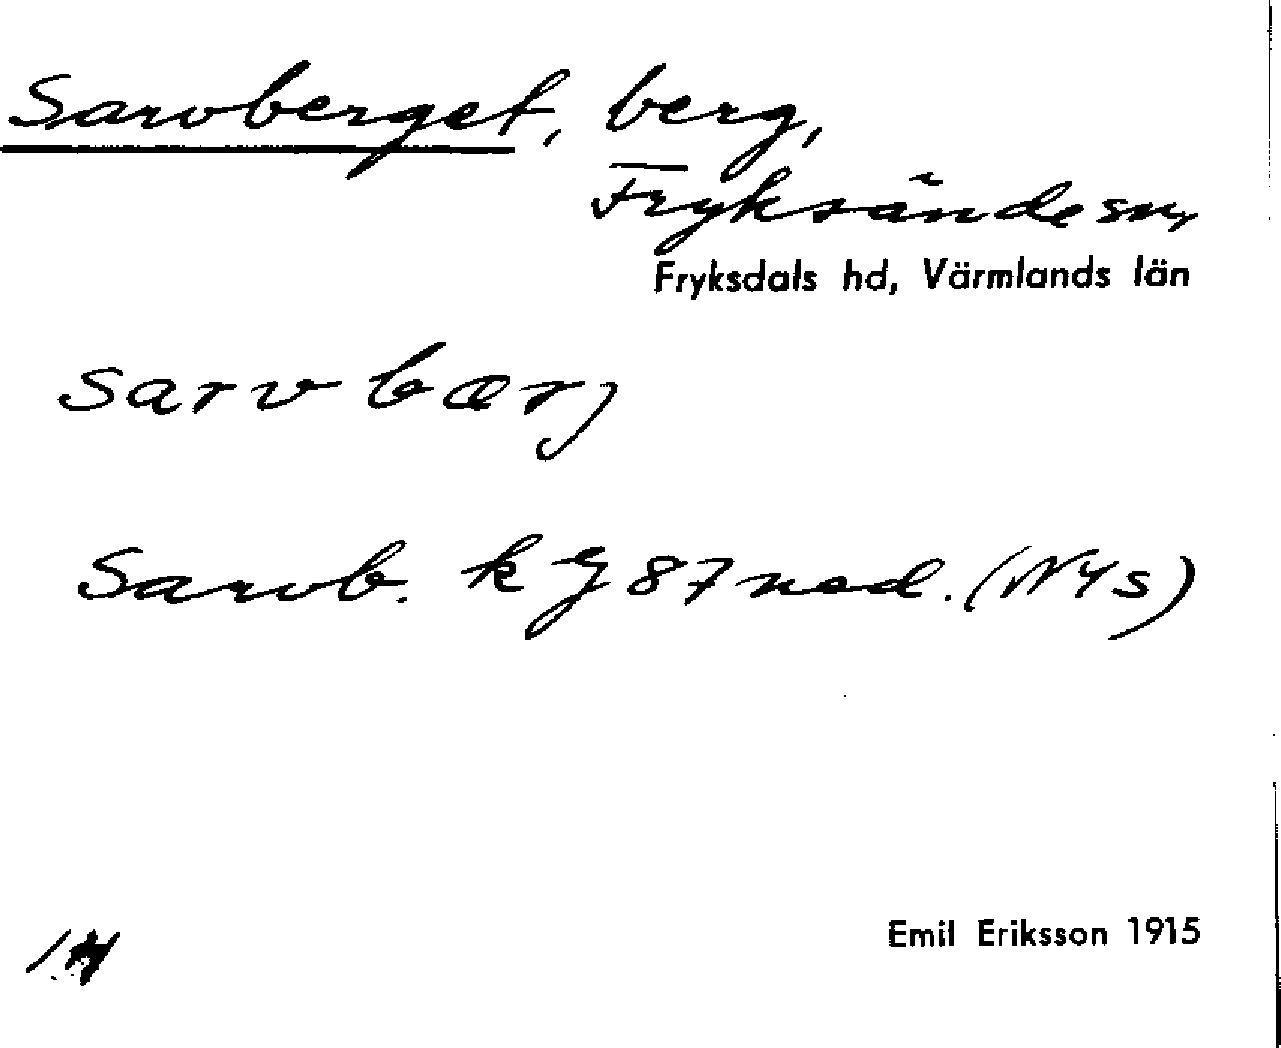 Sarvberget, berg,
Fryksände sn,
Fryksdals hd, Värmlands län
sarvbærj
Sarvb. k 87 ned. (NYs)
Emil Eriksson 1915